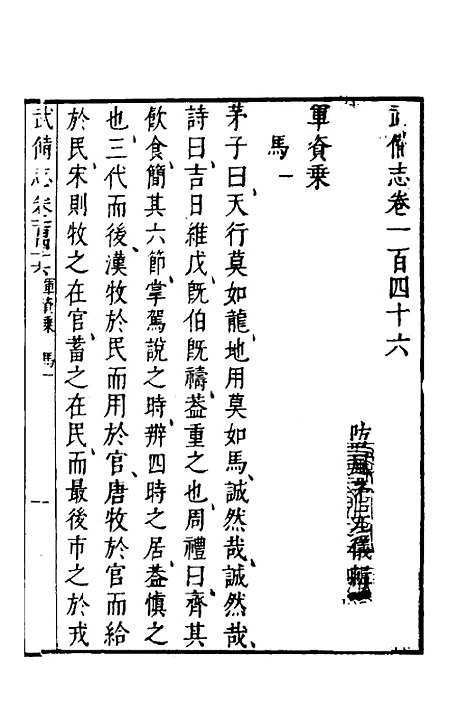 武備志卷一百四十六
防風茅元儀輯
軍資乘
馬一
茅子曰天行莫如龍地用莫如馬誠然哉誠然哉
詩曰吉日維戊旣伯旣禱葢重之也周禮曰齊其
飲食簡其六節掌駕說之時辨四時之居葢慎之
也三代而後漢牧於民而用於官唐牧於官而給
於民宋則牧之在官蓄之在民而最後市之於戎
武備志卷一百四十六 軍資乘 馬一 一